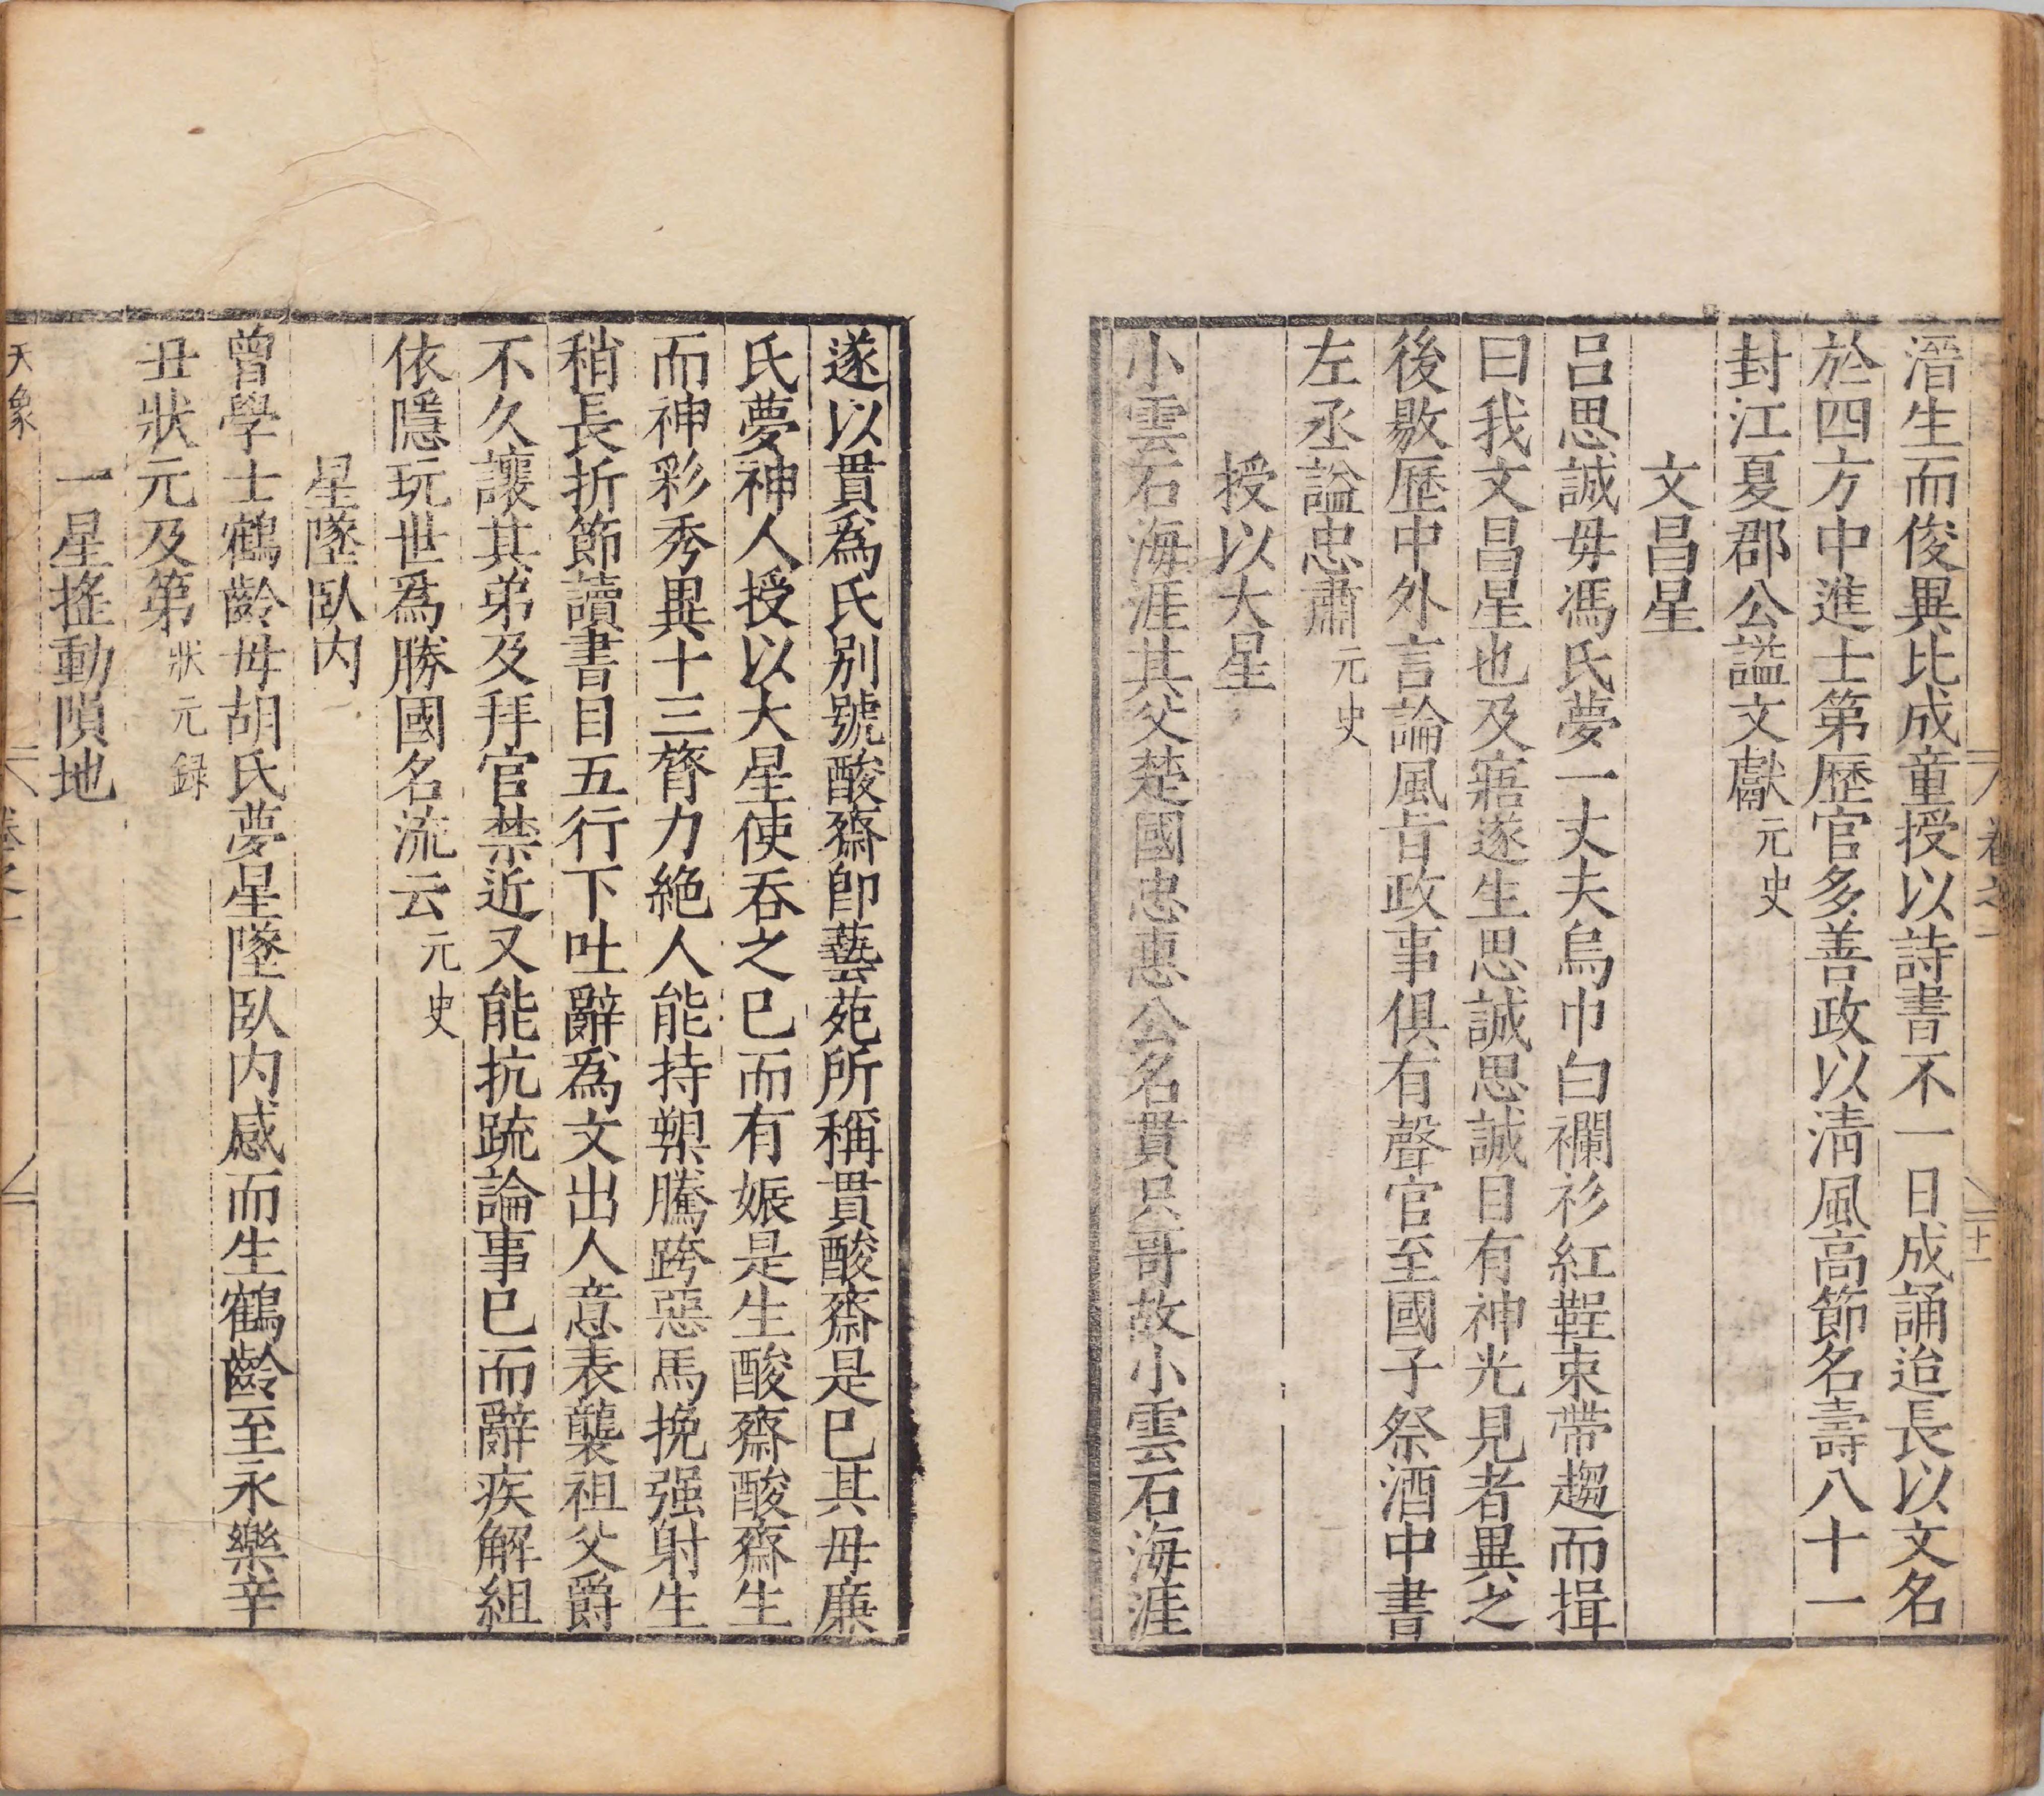 卷之一
十一
溍生而俊異比成童授以詩書不一日成誦迨長以文名
於四方中進士第歷官多善政以清風高節名壽八十一
封江夏郡公謚文獻元史
文昌星
呂思誠毋馮氏夢一丈夫烏巾白襴衫紅鞓束帶趨而揖
曰我文昌星也及寤遂生思誠思誠目有神光見者異之
後敭歷中外言論風旨政事俱有聲官至國子祭酒中書
左丞謚忠肅元史
授以大星
小雲石海涯其父楚國忠惠公名貫只哥故小雲石海涯
遂以貫爲氏别號酸齋卽藝苑所稱貫酸齋是巳其毋廉
氏夢神人授以大星使吞之巳而有娠是生酸齋酸齋生
而神彩秀異十三膂力絶人能持槊騰跨惡馬挽强射生
稍長折節讀書目五行下吐辭爲文出人意表襲祖父爵
不久讓其弟及拜官禁近又能抗疏論事巳而辭疾解組
依隱玩世爲勝國名流云元史
星墜臥内
曾學士鶴齡毋胡氏夢星墜臥内感而生鶴齡至永樂辛
丑狀元及第狀元録
一星搖動隕地
天象
卷之一